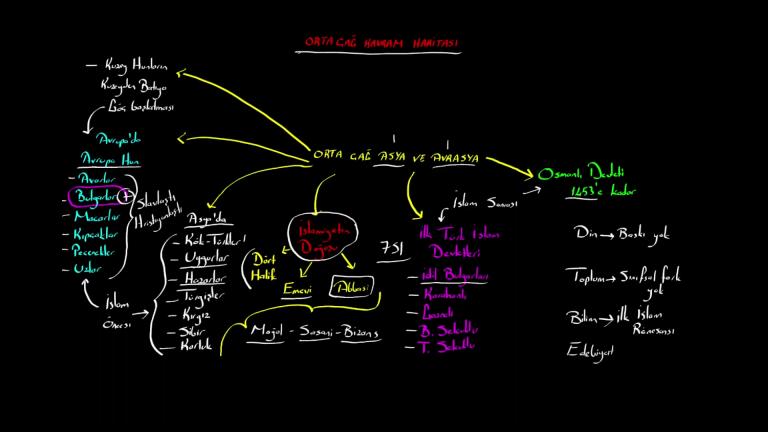 ORTA ÇAĞ KAVRAM HARİTASI
— Kuzey Hunların
Kuzeyden Batıya
Göç başlatması
Avrupa'da
Avrupa Hun
– Avarlar
– Bulgarlar +
– Macarlar
– Kıpçaklar
– Peçenekler
– Uzlar
Slavlaştı
Hristiyanlaştı
İslam
Öncesi
ORTA ÇAĞ ASYA VE AVRASYA
Asya'da
– Kök-Türkler
– Uygurlar
– Hazarlar
– Türgişler
– Kırgız
– Sibir
– Karluk
İslamiyetin
Doğuşu
Dört
Halife
Emevi
Abbasi
751
Moğol - Sasani - Bizans
İslam Sonrası
İlk Türk İslam
Devletleri
– İdil Bulgarları
– Karahanlı
– Gazneli
– B. Selçuklu
– T. Selçuklu
Osmanlı Devleti
1453'e kadar
Din → Baskı yok
Toplum → Sınıfsal fark
yok
Bilim → İlk İslam
Rönesansı
Edebiyat